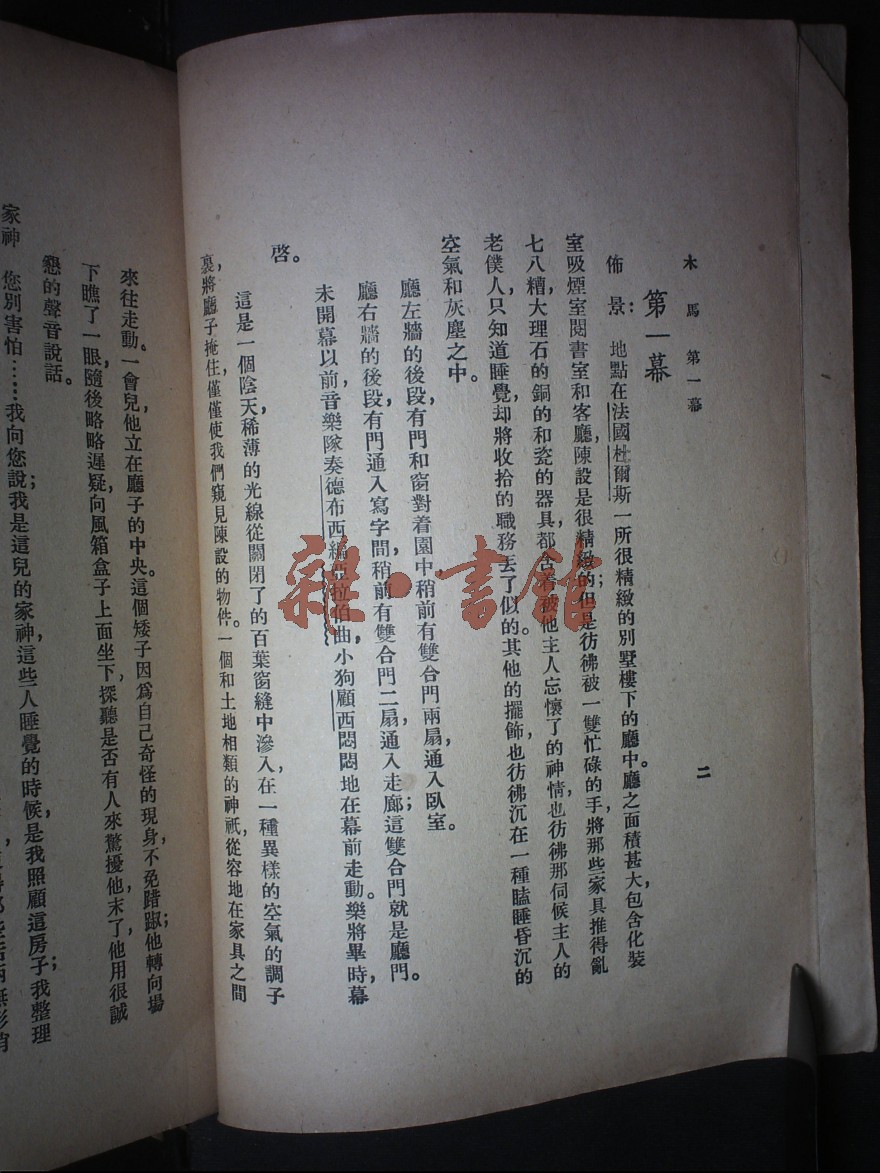 木馬 第一幕
二
第一幕
佈景：地點在法國杜爾斯一所很精緻的別墅樓下的廳中。廳之面積甚大，包含化裝
室吸煙室閱書室和客廳，陳設是很精緻的；但是彷彿被一雙忙碌的手，將那些家具推得亂
七八糟，大理石的銅的和瓷的器具，都含着被他主人忘懷了的神情，也彷彿那伺候主人的
老僕人，只知道睡覺，却將收拾的職務丟了似的。其他的擺飾也彷彿沉在一種瞌睡昏沉的
空氣和灰塵之中。
廳左牆的後段有門和窗對着園中，稍前有雙合門兩扇，通入臥室。
廳右牆的後段有門通入寫字間，稍前有雙合門二扇，通入走廊；這雙合門就是廳門。
未開幕以前，音樂隊奏德布西編亞拉伯曲，小狗顧西悶悶地在幕前走動。樂將畢時，幕
啓。
這是一個陰天，稀薄的光線從關閉了的百葉窗縫中滲入，在一種異樣的空氣的調子
裏，將廳子掩住，僅僅使我們窺見陳設的物件。一個和土地相類的神祇，從容地在家具之間
雜·書館
來往走動一會兒，他立在廳子的中央。這個矮子因爲自己奇怪的現身，不免躊躇；他轉向場
下瞧了一眼，隨後略略遲疑，向風箱盒子上面坐下，探聽是否有人來驚擾他，末了，他用很誠
懇的聲音說話。
家神 您別害怕……我向您說，我是這兒的家神，這些人睡覺的時候，是我照顧這房子；我整理